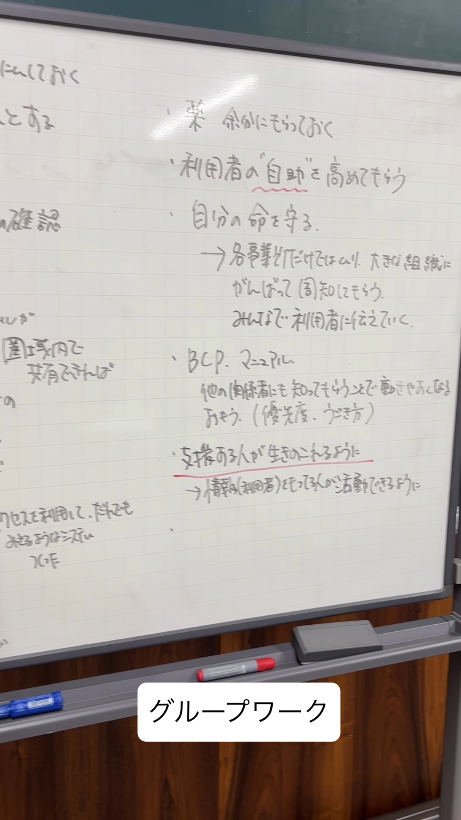 にしておく
とする
の確認
圏域内で
共有できれば
の
クセスを利用して、だれでも
みえるようなシステム
・薬 余分にもらっておく
・利用者の"自助"を高めてもらう
・自分の命を守る.
→各事業所だけではムリ. 大きな組織に
がんばって周知してもらう.
みんなで利用者に伝えていく.
・BCP. マニュアル
他の関係者にも知ってもらうことで動きやすくなる
おもう. (優先度、うごき方)
・支援する人が生きのこれるように
→情報(利用者)をもってる人が活動できるように
・
グループワーク